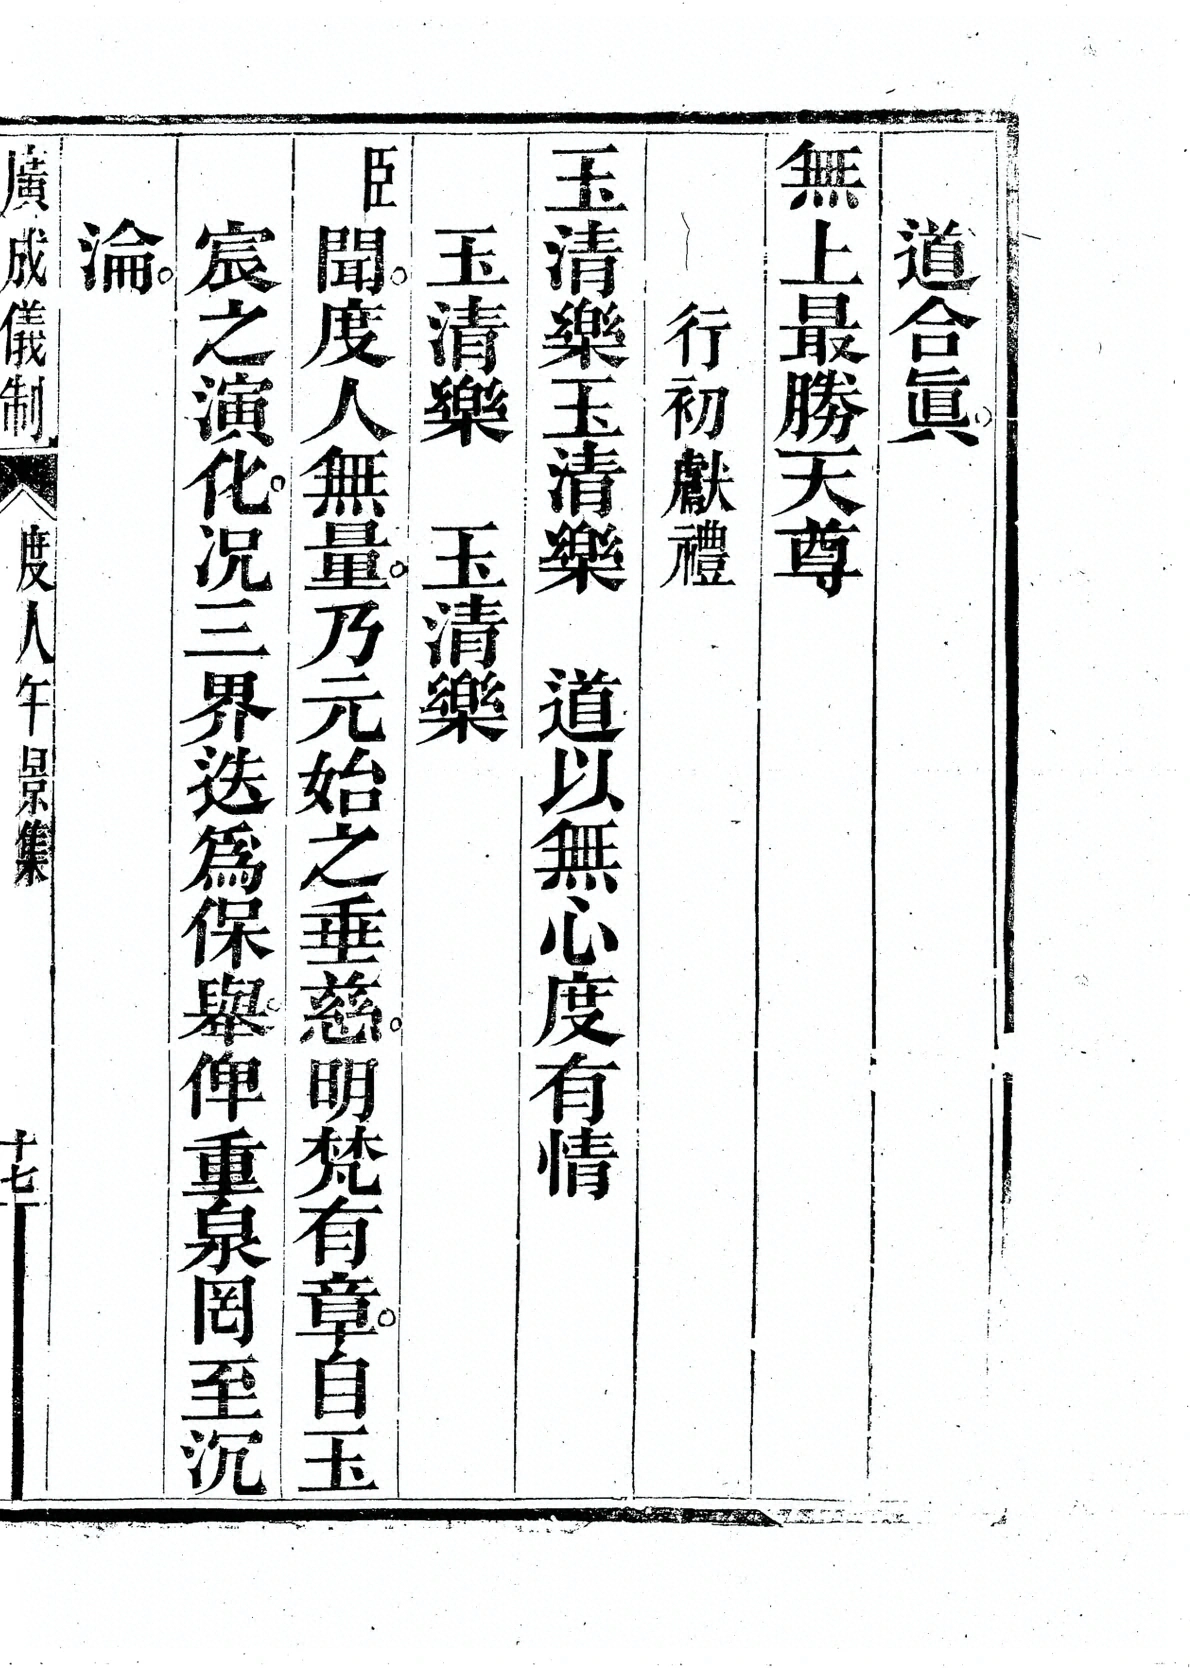 道合眞。
無上最勝天尊
行初獻禮
玉清樂玉清樂　道以無心度有情
玉清樂　玉清樂
臣聞。度人無量。乃元始之垂慈。明梵有章。自玉
宸之演化。況三界迭爲保舉。俾重泉罔至沉
淪。
廣成儀制　度人午景集　十七